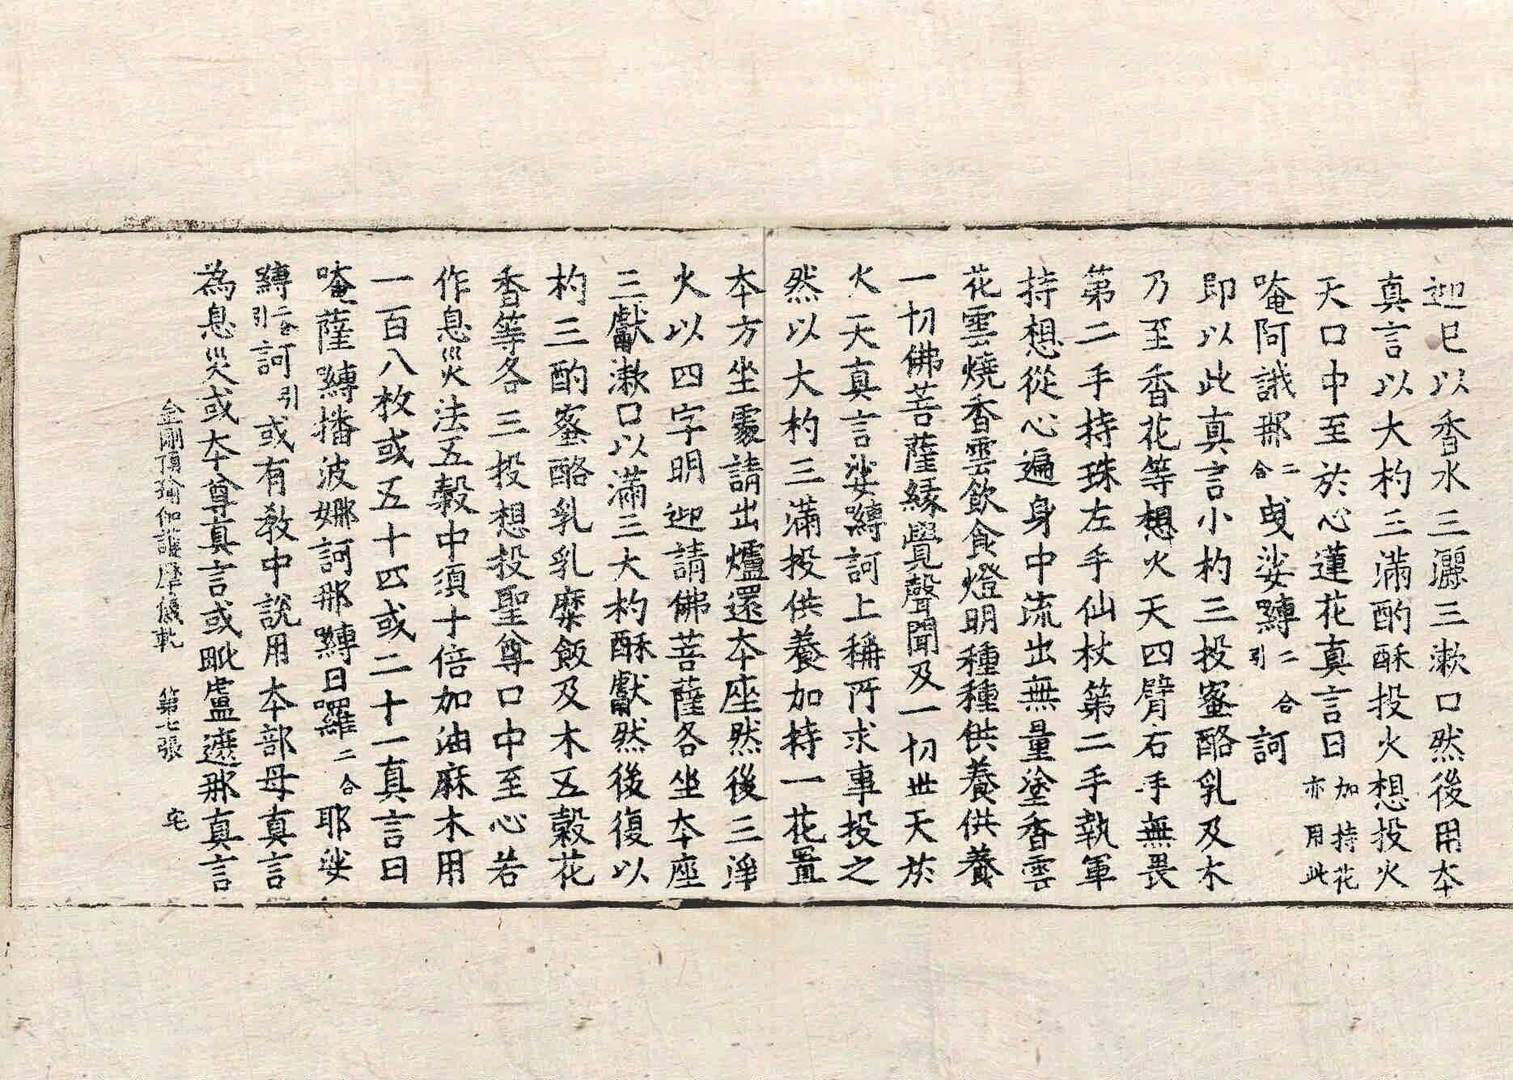 迎巳以香水三灑三漱口然後用夲
真言以大杓三滿酌酥投火想投火
天口中至於心蓮花真言曰加持花亦用此
唵阿誐那二合曳娑嚩二合引訶
即以此真言小杓三投蜜酪乳及木
乃至香花等想火天四臂右手無畏
第二手持珠左手仙杖第二手執軍
持想從心遍身中流出無量塗香雲
花雲燒香雲飲食燈明種種供養供養
一切佛菩薩緣覺聲聞及一切世天於
火天真言娑嚩訶上稱所求事投之
然以大杓三滿投供養加持一花置
夲方坐䖏請出爐還夲座然後三淨
火以四字明迎請佛菩薩各坐夲座
三獻漱口以滿三大杓酥獻然後復以
杓三酌蜜酪乳乳糜飯及木五穀花
香等各三投想投聖尊口中至心若
作息災法五穀中須十倍加油麻木用
一百八枚或五十四或二十一真言曰
唵薩嚩播波娜訶那嚩日囉二合耶娑
嚩二合引訶引或有教中說用夲部母真言
為息災或夲尊真言或毗盧遮那真言
金剛頂瑜伽護摩儀軌 第七張 宅